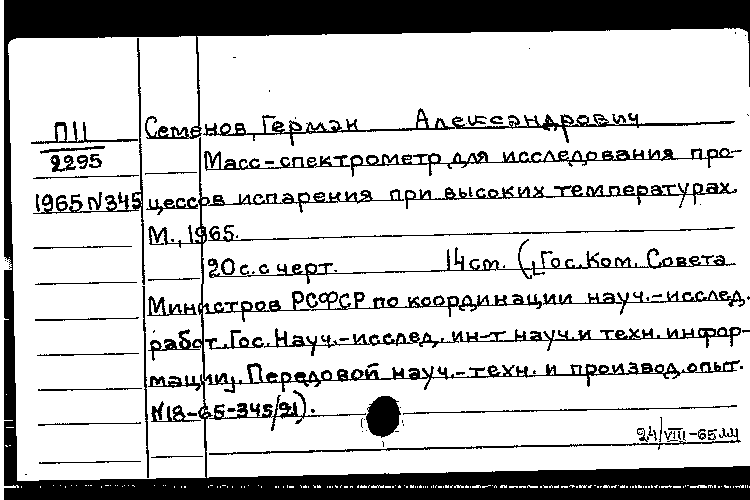 П11 Семенов, Герман Александрович
2295 Масс-спектрометр для исследования про-
1965 N345 цессов испарения при высоких температурах.
М., 1965.
20 с. с черт. 14 см. ([Гос. Ком. Совета
Министров РСФСР по координации науч.-исслед.
работ. Гос. Науч.-исслед. ин-т науч. и техн. инфор-
мации]. Передовой науч.-техн. и производ. опыт.
N18-65-345/21).
24/VIII-65